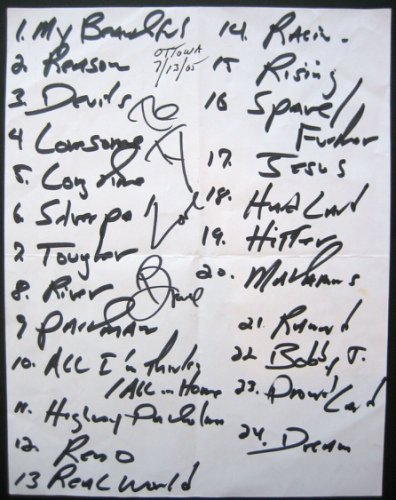 1. My Beautiful
2. Reason
OTTOWA
7/13/05
3. Devils
4 Lonesome
5. Long Time
6. Silver Pa
7 Tougher
8. River
9 Part Man
10. ALL I'm Thinkin
/ALL in Home
11. Highway Patrolman
12. Reno
13 Real World
14. Racin.
15 Rising
16 Spare/
Further
17. Jesus
18. Hard Land
19. Hitter
20. Matamoros
21. Ramrod
22 Bobby J.
23. Promised Land
24. Dream